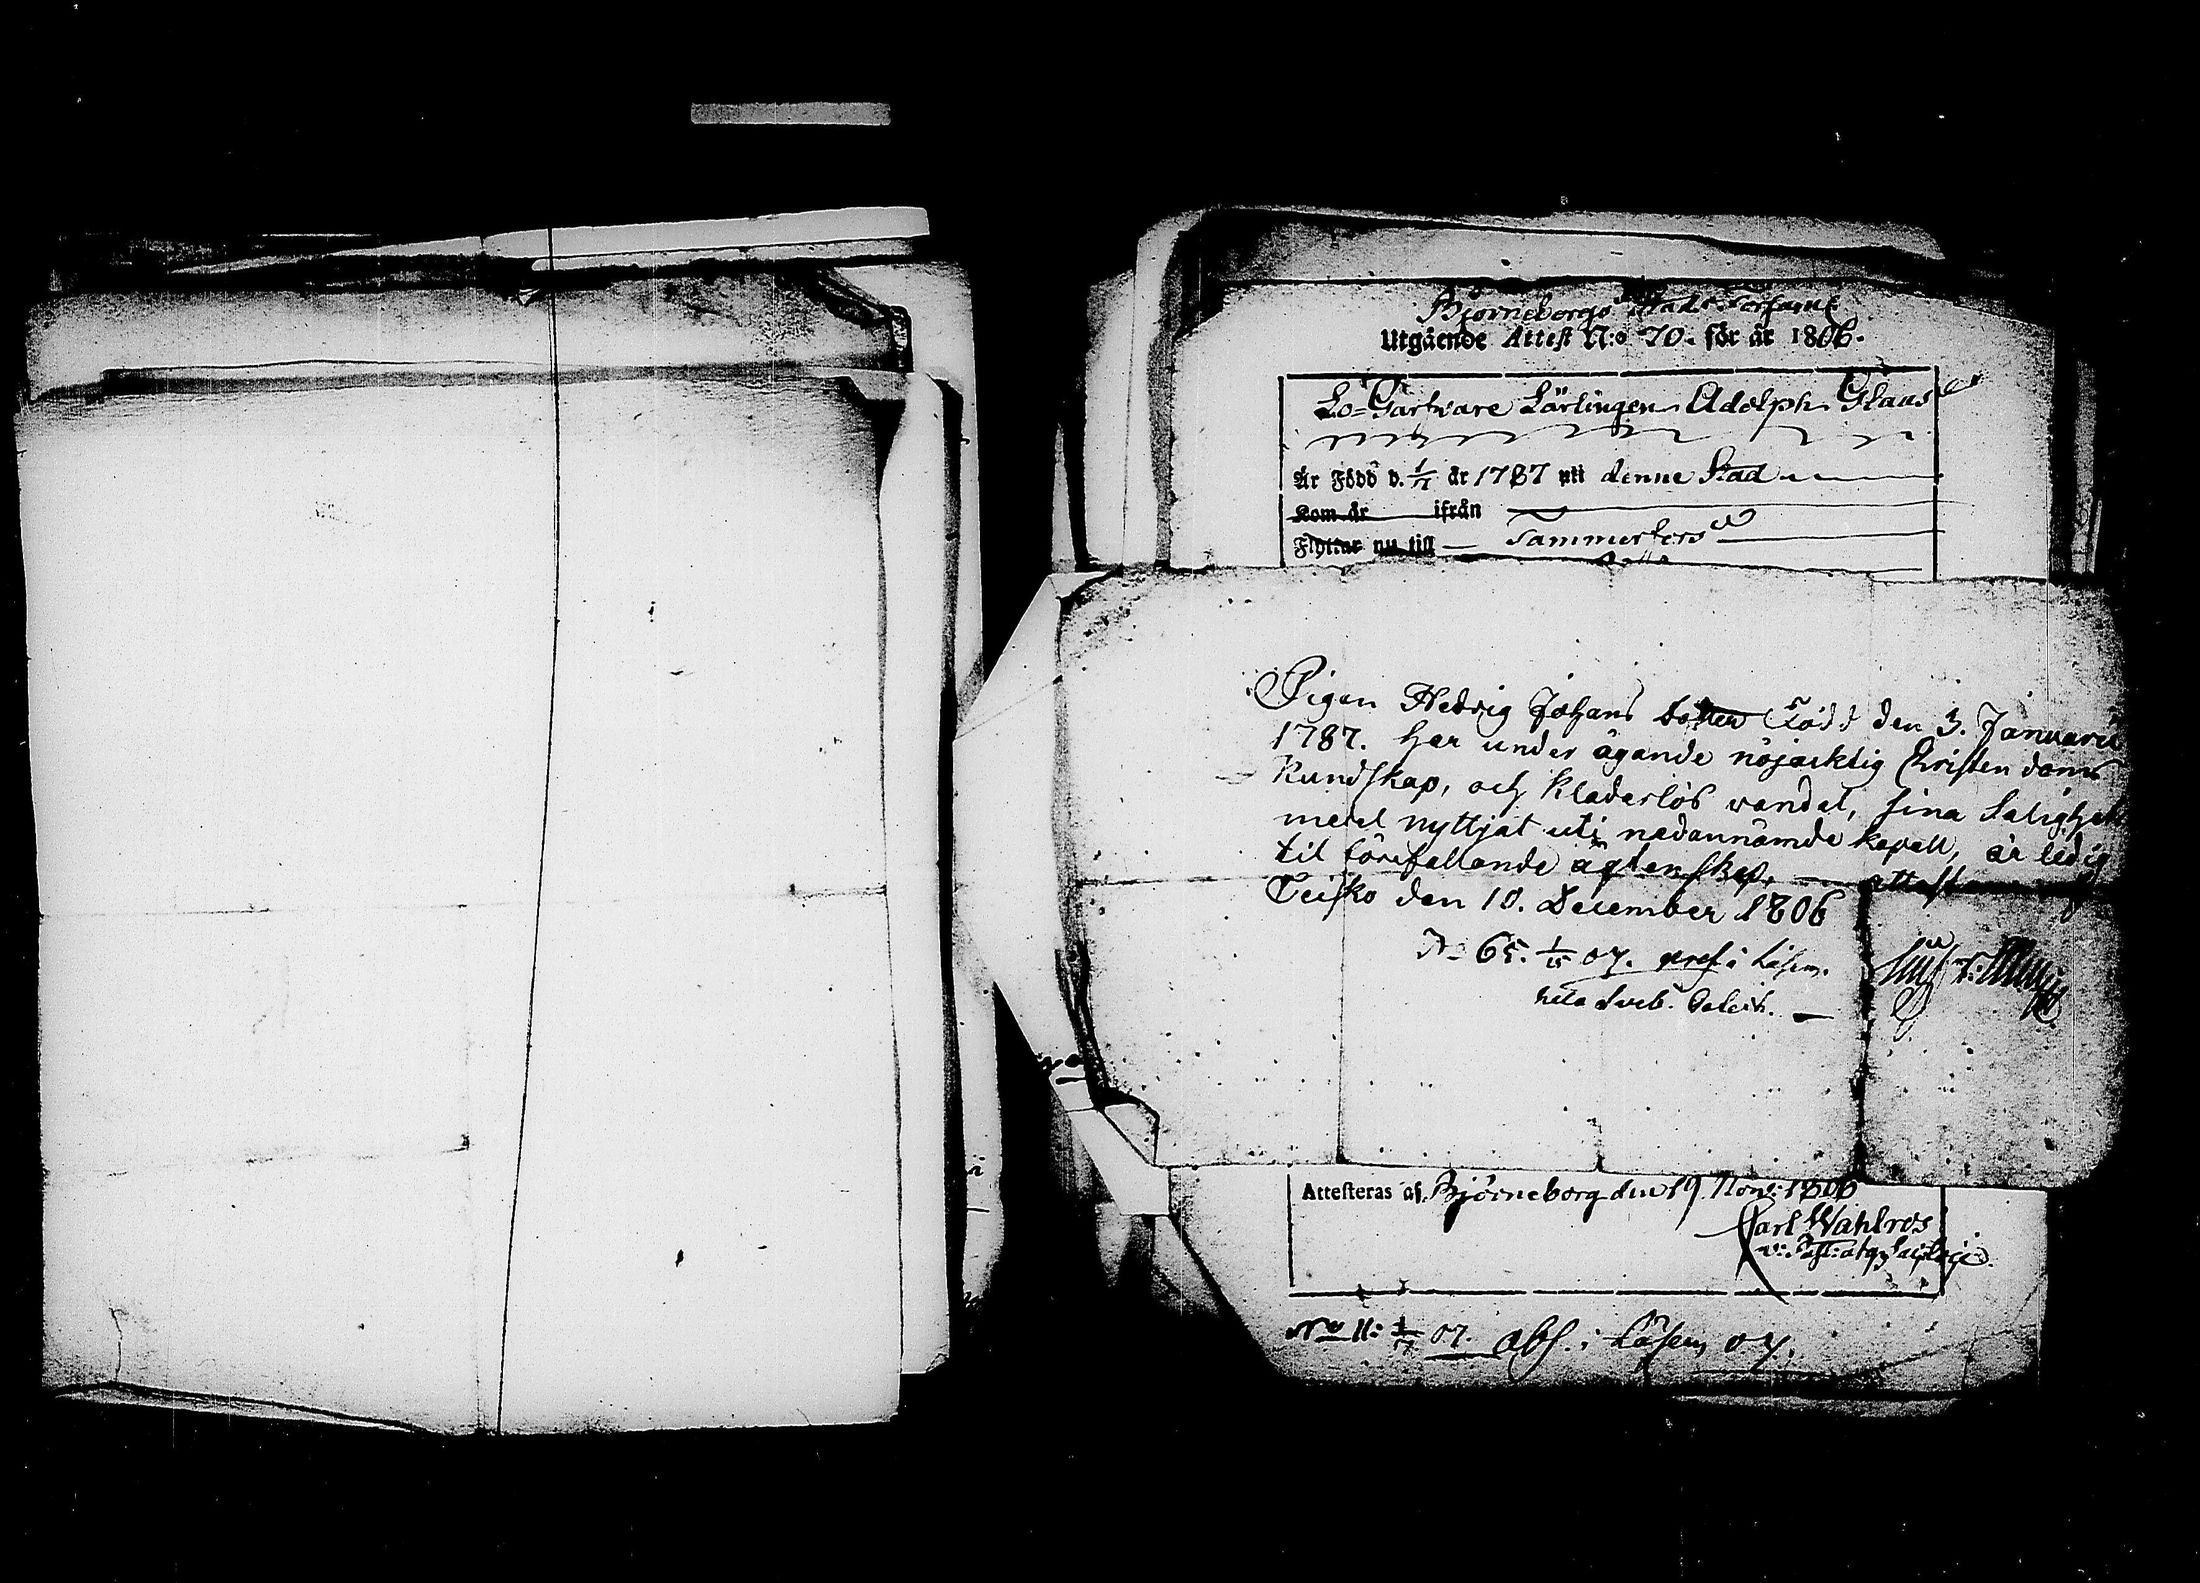 Björneborgs Stads Församl
Utgående Attest N:o 70. för år 1806.
Lo-Garfvare Lärlingen Adolph Claus
År Född d. 1/7 år 1787 uti denne Stad
Kom år ifrån
Flyttar nu till Tammerfors
Pigan Hedvig Johans dotter Född den 3. Januarii
1787. har under ägande nöjacktig Christendoms
Kundskap, och Kladerlös vandel, sina Salighets
medel nyttjat uti nedannämde kapell, är ledig
til förefallande ägtenskap. — attest
Teisko den 10. December 1806
N 65. 1/15 07. pres. i Läsem.
Attesteras af. Björneborg den 19 Nov: 1806
Carl Wahlros
N:o 11: 1/7 07. abs. i Läsem 07.